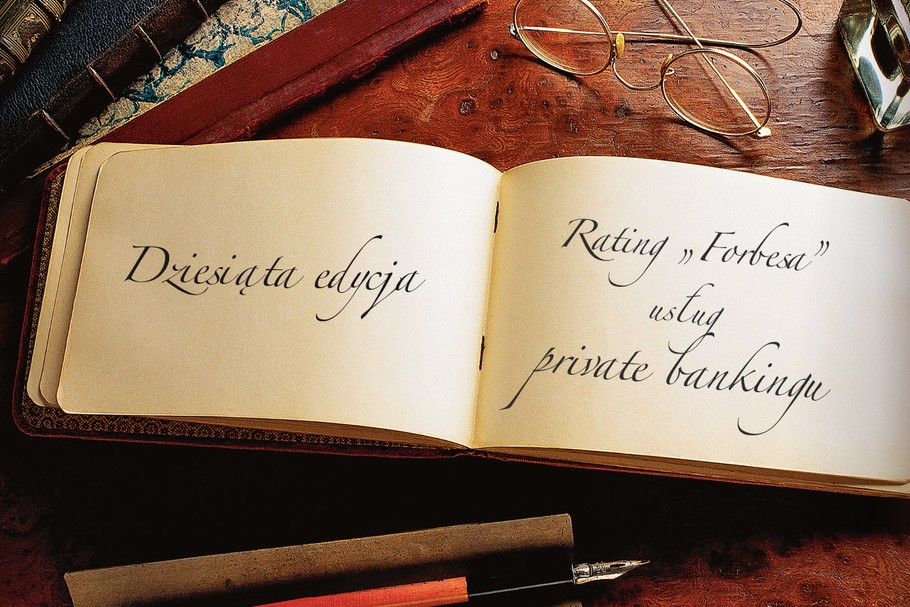 Dziesiąta edycja
Rating „Forbesa”
usług
private bankingu